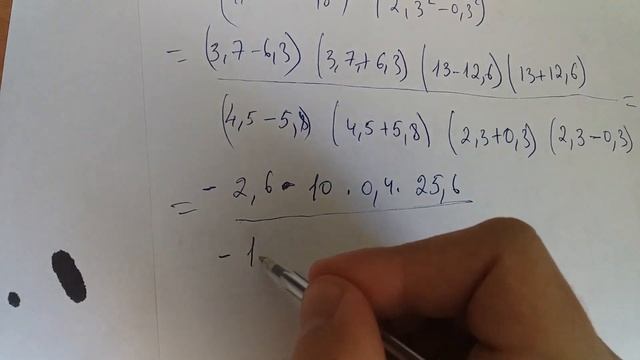 (2,3²-0,3²)
= (3,7-6,3) (3,7+6,3) (13-12,6)(13+12,6)
(4,5-5,8) (4,5+5,8) (2,3+0,3) (2,3-0,3) =
= - 2,6 · 10 · 0,4 · 25,6
- 1